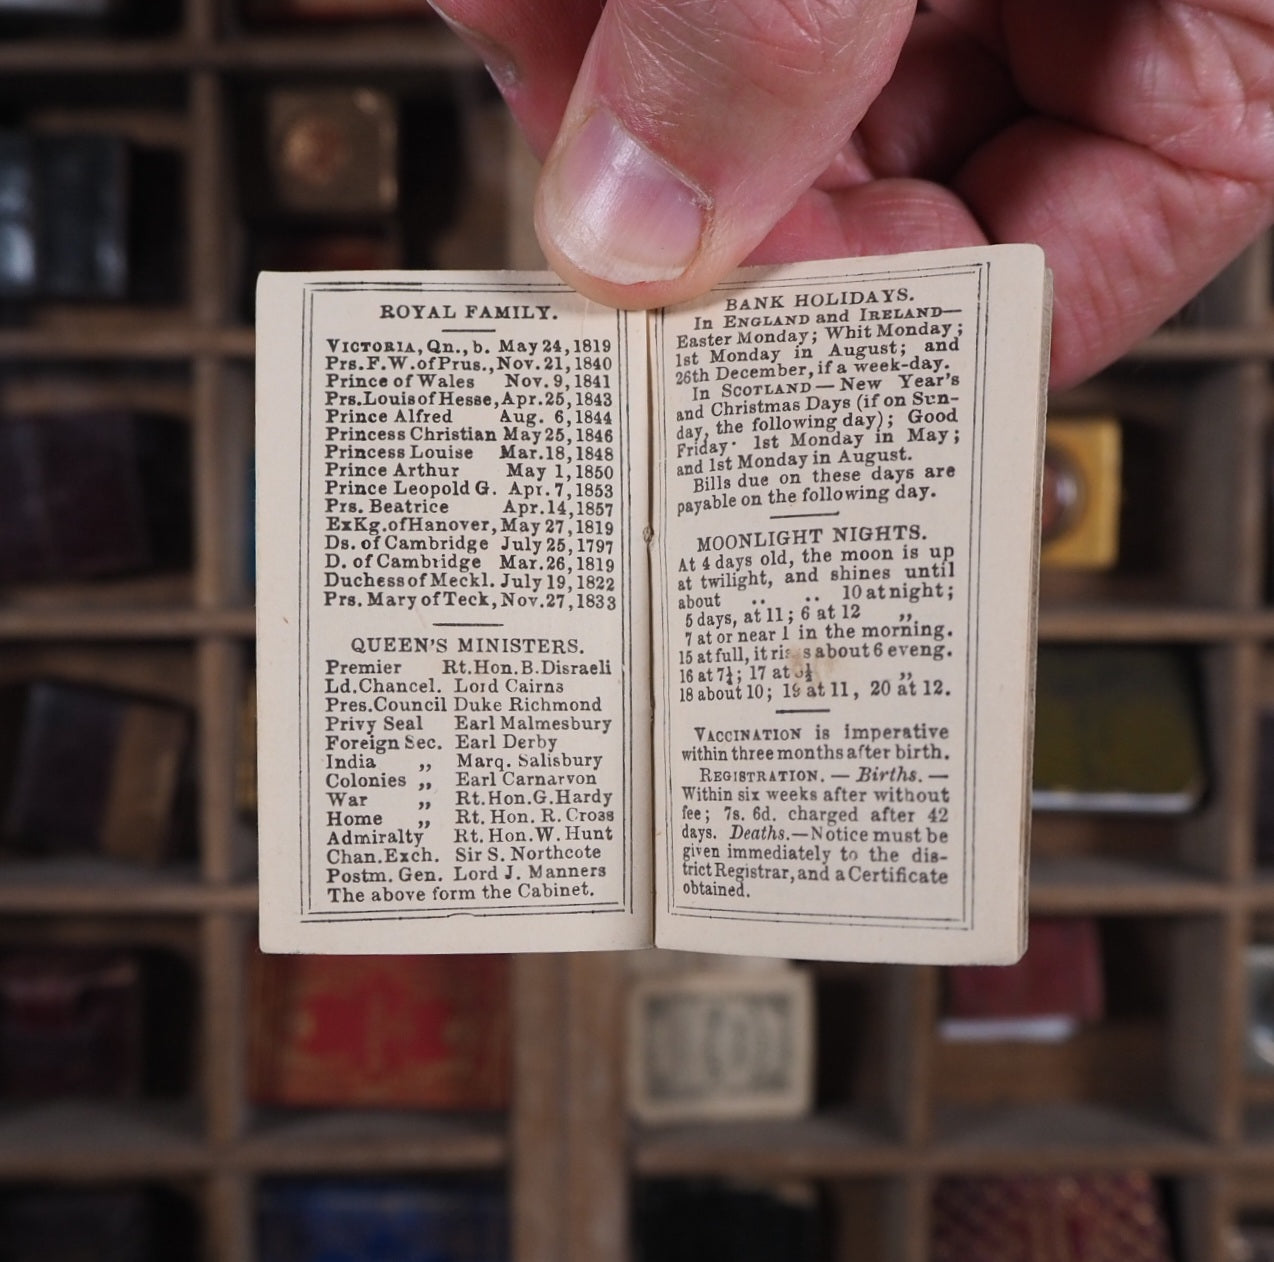 ROYAL FAMILY.
VICTORIA, Qn., b. May 24, 1819
Prs. F. W. of Prus., Nov. 21, 1840
Prince of Wales Nov. 9, 1841
Prs. Louis of Hesse, Apr. 25, 1843
Prince Alfred Aug. 6, 1844
Princess Christian May 25, 1846
Princess Louise Mar. 18, 1848
Prince Arthur May 1, 1850
Prince Leopold G. Apr. 7, 1853
Prs. Beatrice Apr. 14, 1857
Ex Kg. of Hanover, May 27, 1819
Ds. of Cambridge July 25, 1797
D. of Cambridge Mar. 26, 1819
Duchess of Meckl. July 19, 1822
Prs. Mary of Teck, Nov. 27, 1833
QUEEN'S MINISTERS.
Premier Rt. Hon. B. Disraeli
Ld. Chancel. Lord Cairns
Pres. Council Duke Richmond
Privy Seal Earl Malmesbury
Foreign Sec. Earl Derby
India „ Marq. Salisbury
Colonies „ Earl Carnarvon
War „ Rt. Hon. G. Hardy
Home „ Rt. Hon. R. Cross
Admiralty Rt. Hon. W. Hunt
Chan. Exch. Sir S. Northcote
Postm. Gen. Lord J. Manners
The above form the Cabinet.
BANK HOLIDAYS.
In ENGLAND and IRELAND—
Easter Monday; Whit Monday;
1st Monday in August; and
26th December, if a week-day.
In SCOTLAND — New Year's
and Christmas Days (if on Sun-
day, the following day); Good
Friday· 1st Monday in May;
and 1st Monday in August.
Bills due on these days are
payable on the following day.
MOONLIGHT NIGHTS.
At 4 days old, the moon is up
at twilight, and shines until
about .. .. 10 at night;
5 days, at 11; 6 at 12 „
7 at or near 1 in the morning.
15 at full, it about 6 eveng.
16 at 7¼; 17 at „
18 about 10; 19 at 11, 20 at 12.
VACCINATION is imperative
within three months after birth.
REGISTRATION. — Births. —
Within six weeks after without
fee; 7s. 6d. charged after 42
days. Deaths.—Notice must be
given immediately to the dis-
trict Registrar, and a Certificate
obtained.